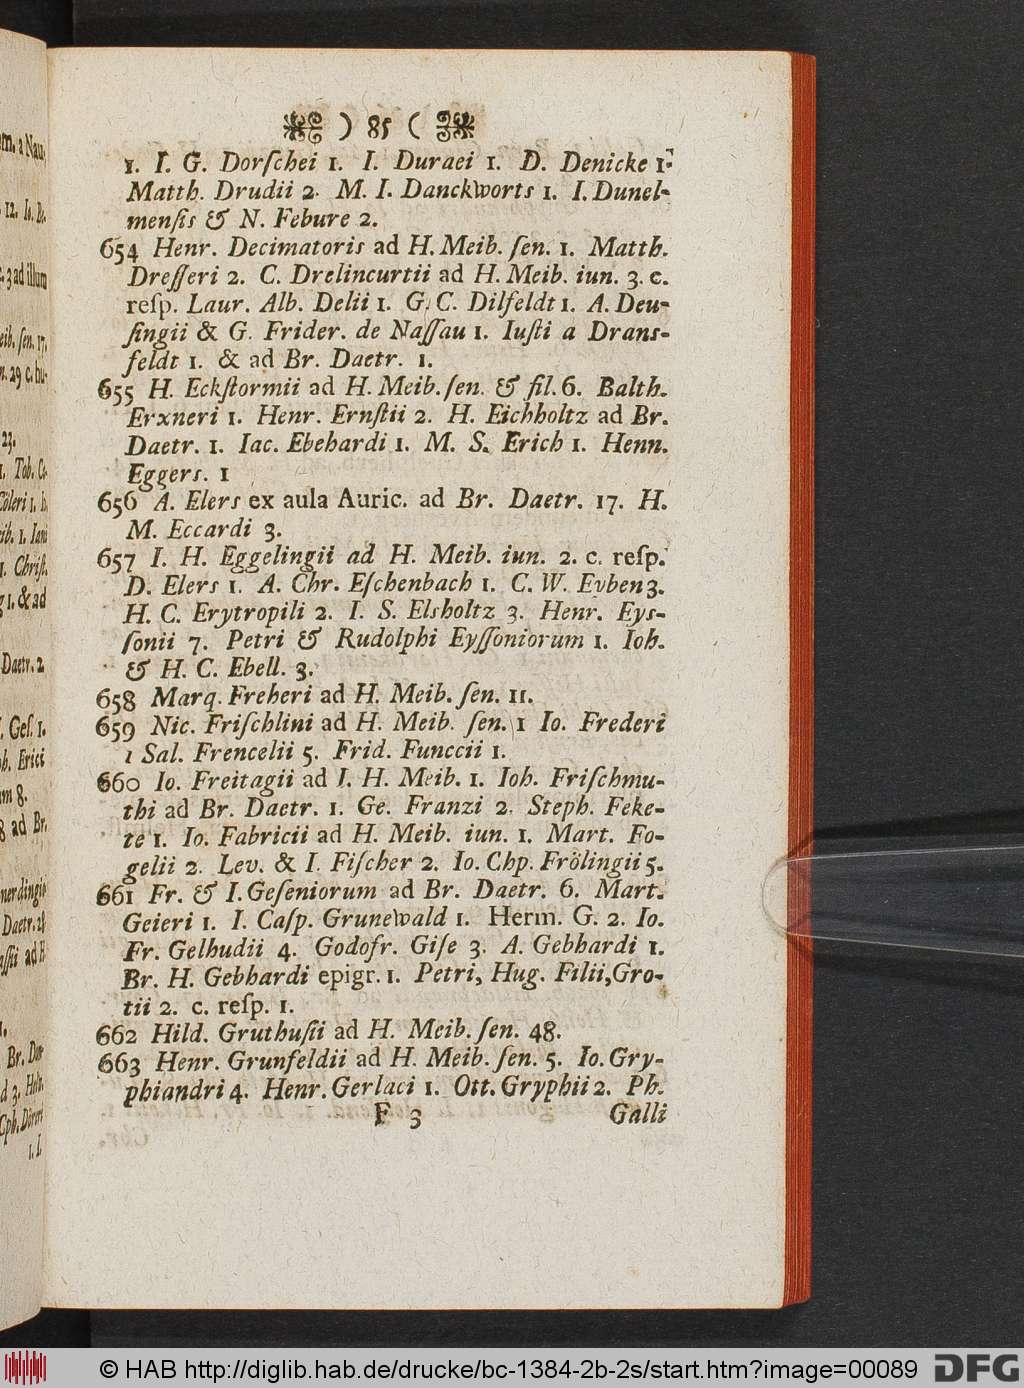 ) 85 (
1. I. G. Dorſchei 1. I. Duraei 1. D. Denicke 1.
Matth. Drudii 2. M. I. Danckworts 1. I. Dunel-
menſis & N. Febure 2.
654 Henr. Decimatoris ad H. Meib. ſen. 1. Matth.
Dreſſeri 2. C. Drelincurtii ad H. Meib. iun. 3. c.
reſp. Laur. Alb. Delii 1. G. C. Dilfeldt 1. A. Deu-
ſingii & G. Frider. de Naſſau 1. Iuſti a Drans-
feldt 1. & ad Br. Daetr. 1.
655 H. Eckſtormii ad H. Meib. ſen. & fil. 6. Balth.
Erxneri 1. Henr. Ernſtii 2. H. Eichholtz ad Br.
Daetr. 1. Iac. Ebehardi 1. M. S. Erich 1. Henn.
Eggers. 1
656 A. Elers ex aula Auric. ad Br. Daetr. 17. H.
M. Eccardi 3.
657 I. H. Eggelingii ad H. Meib. iun. 2. c. reſp.
D. Elers 1. A. Chr. Eſchenbach 1. C. W. Eyben 3.
H. C. Erytropili 2. I. S. Elsholtz 3. Henr. Eys-
ſonii 7. Petri & Rudolphi Eyſſoniorum 1. Ioh.
& H. C. Ebell. 3.
658 Marq. Freheri ad H. Meib. ſen. 11.
659 Nic. Friſchlini ad H. Meib. ſen. 1 Io. Frederi
1 Sal. Frencelii 5. Frid. Funccii 1.
660 Io. Freitagii ad I. H. Meib. 1. Ioh. Friſchmu-
thi ad Br. Daetr. 1. Ge. Franzi 2. Steph. Feke-
te 1. Io. Fabricii ad H. Meib. iun. 1. Mart. Fo-
gelii 2. Lev. & I. Fiſcher 2. Io. Chp. Frölingii 5.
661 Fr. & I. Geſeniorum ad Br. Daetr. 6. Mart.
Geieri 1. I. Caſp. Grunewald 1. Herm. G. 2. Io.
Fr. Gelhudii 4. Godofr. Giſe 3. A. Gebhardi 1.
Br. H. Gebhardi epigr. 1. Petri, Hug. Filii, Gro-
tii 2. c. reſp. 1.
662 Hild. Gruthuſii ad H. Meib. ſen. 48.
663 Henr. Grunfeldii ad H. Meib. ſen. 5. Io. Gry-
phiandri 4. Henr. Gerlaci 1. Ott. Gryphii 2. Ph.
F 3 Galli
© HAB http://diglib.hab.de/drucke/bc-1384-2b-2s/start.htm?image=00089 DFG